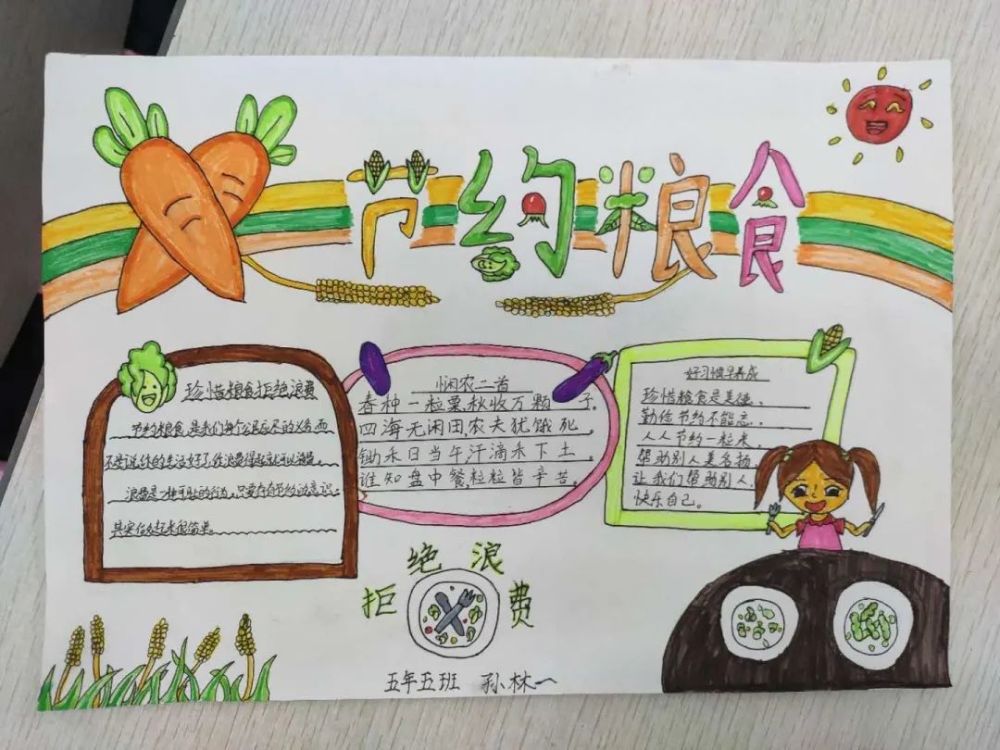 节约粮食
珍惜粮食拒绝浪费
节约粮食,是我们每个公民应尽的义务,而
不是说你的生活好了,你浪费得起就可以浪费。
浪费是一种可耻的行为,只要存有节约的意识。
其实做起来很简单。
悯农二首
春种一粒粟,秋收万颗子。
四海无闲田,农夫犹饿死。
锄禾日当午,汗滴禾下土。
谁知盘中餐,粒粒皆辛苦。
好习惯早养成
珍惜粮食是美德。
勤俭节约不能忘。
人人节约一粒米。
帮助别人美名扬。
让我们帮助别人,
快乐自己。
拒绝浪费
五年五班 孙林一